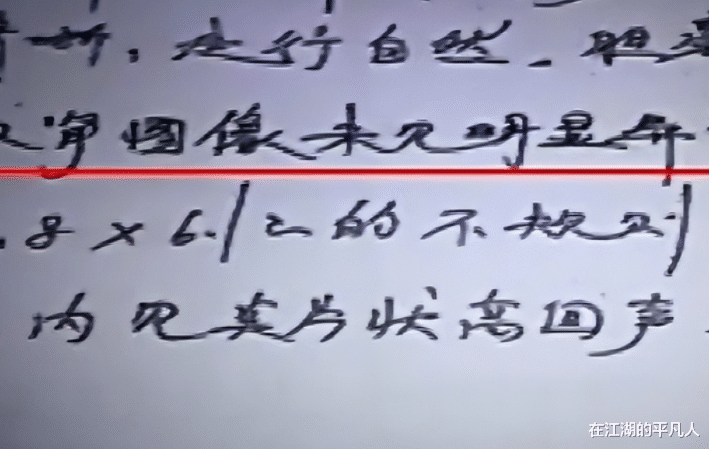 走行自然. 胆
图像未见明显异
.8×6.1 的不规则
内见 片状高回声
在江湖的平凡人